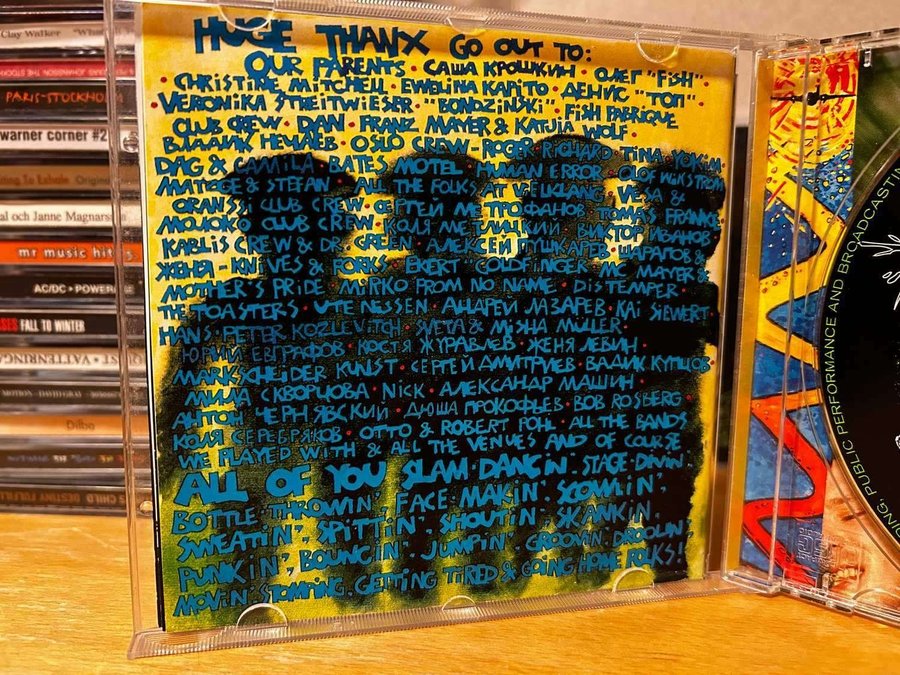 HUGE THANX GO OUT TO:
OUR PARENTS • САША КРОШКИН • ОЛЕГ "FiSH" •
CHRISTINE MITCHELL • EWELINA KAPITO • ДЕНИС "ТОП" •
VERONIKA STREITWIESER • "BONDZiNSKi" • FiSH FABRIQUE
CLUB CREW • DAN • FRANZ MAYER & KATJIA WOLF •
ВЛАДИК НЕЧАЕВ • OSLO CREW - ROGER RICHARD • TINA
DAG & CAMiLA BATES MOTEL • HUMAN ERROR • OLOF WIKSTROM
& STEFAN • ALL THE FOLKS AT VEUKLANG • VESA &
ORANSSI CLUB CREW • СЕРГЕЙ МЕТРОФАНОВ • TOMAS FRANKE
МОЛОКО CLUB CREW • КОЛЯ МЕТЛИЦКИЙ • ВИКТОР ИВАНОВ •
KARLIS CREW & DR. GREEN • АЛЕКСЕЙ ПУШКАРЕВ • ШАРАПОВ &
ЖЕНЯ - KNiVES & FORKS • EKERT "GOLDFINGER" MC MAYER &
MOTHER'S PRIDE • MiRKO FROM NO NAME • DiSTEMPER •
THE TOASTERS • UTE NESSEN • АНДРЕЙ ЛАЗАРЕВ • KAI SIEWERT
HANS-PETER KOZLEVITCH • SVETA & MiSHA MULLER •
ЮРИЙ ЕВГРАФОВ • КОСТЯ ЖУРАВЛЕВ • ЖЕНЯ ЛЕВИН •
MARK XHEIDER KUNST • СЕРГЕЙ ДМИТРИЕВ • ВАДИК КУПЦОВ •
МИЛА СКВОРЦОВА • NiCK • АЛЕКСАНДР МАШИН •
АНТОН ЧЕРНЯВСКИЙ • ДЮША ПРОКОФЬЕВ • BOB ROSBERG •
КОЛЯ СЕРЕБРЯКОВ • OTTO & ROBERT POHL • ALL THE BANDS
WE PLAYED WITH & ALL THE VENUES AND OF COURSE
ALL OF YOU SLAM-DANCIN', STAGE-DIVIN',
BOTTLE-THROWIN', FACE-MAKIN', SCOWLIN',
SWEATIN', SPITTIN', SHOUTIN', SKANKIN',
PUNKIN', BOUNCIN', JUMPIN', GROOVIN', DROOLIN',
MOVIN', STOMPING, GETTING TIRED & GOING HOME FOLKS!
Clay Walker
PARIS-STOCKHOLM
warner corner #2
al och Janne Magnars
mr music hits
AC/DC • POWER
FALL TO WINTER
Dilba
CHILD DESTINY FULFIL
PUBLIC PERFORMANCE AND BROADCASTING